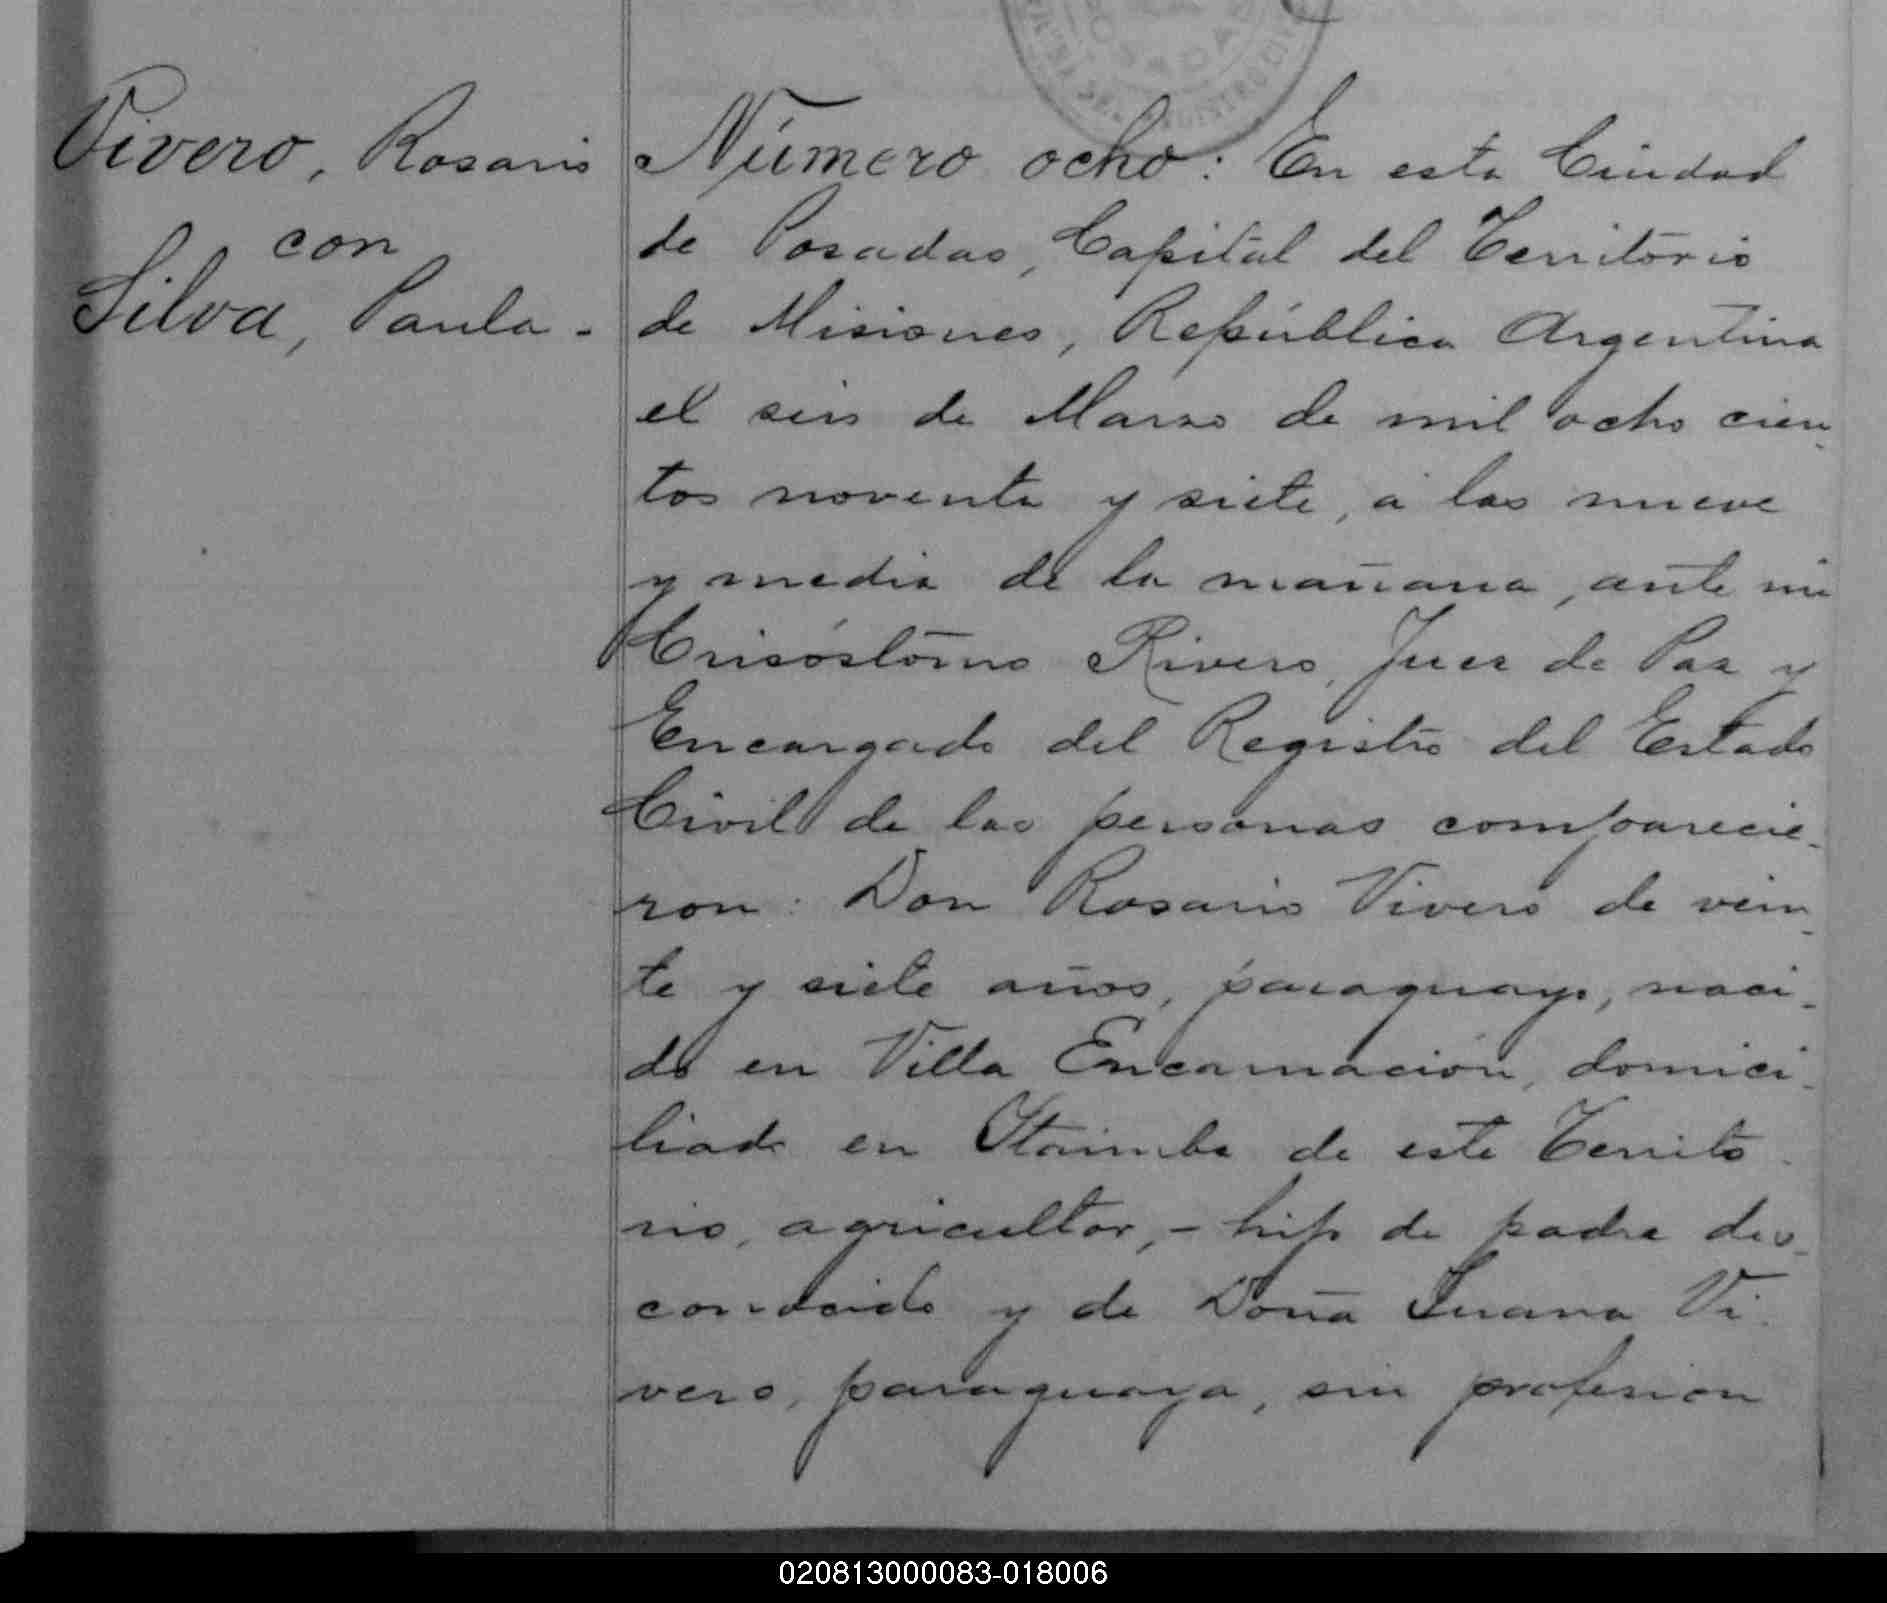 Vivero, Rosario
con
Silva, Paula.
Número ocho: En esta Ciudad
de Posadas, Capital del Territorio
de Misiones, República Argentina
el seis de Marzo de mil ocho cien-
tos noventa y siete, á las nueve
y media de la mañana, ante mi
Crisóstomo Rivero, Juez de Paz y
Encargado del Registro del Estado
Civil de las personas comparecie-
ron: Don Rosario Vivero de vein-
te y siete años, paraguayo, naci-
do en Villa Encarnación, domici-
liado en Itaimbe de este Territo-
rio, agricultor,- hijo de padre des-
conocido y de Doña Juana Vi-
vero, paraguaya, sin profesion
020813000083-018006